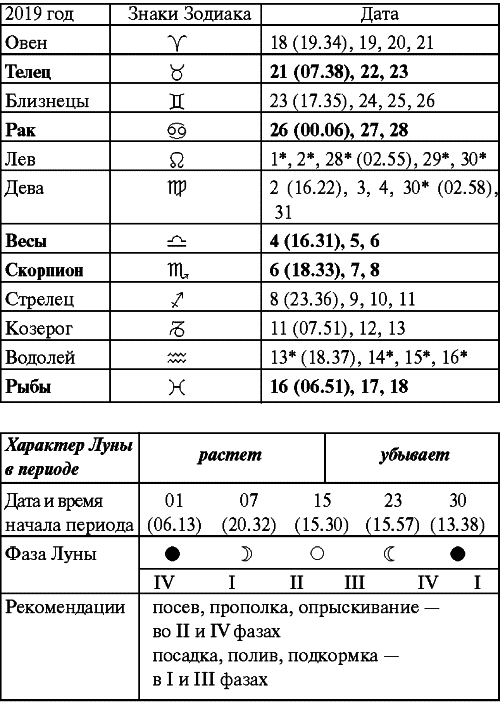 2019 год Знаки Зодиака Дата
Овен ♈ 18 (19.34), 19, 20, 21
Телец ♉ 21 (07.38), 22, 23
Близнецы ♊ 23 (17.35), 24, 25, 26
Рак ♋ 26 (00.06), 27, 28
Лев ♌ 1*, 2*, 28* (02.55), 29*, 30*
Дева ♍ 2 (16.22), 3, 4, 30* (02.58),
31
Весы ♎ 4 (16.31), 5, 6
Скорпион ♏ 6 (18.33), 7, 8
Стрелец ♐ 8 (23.36), 9, 10, 11
Козерог ♑ 11 (07.51), 12, 13
Водолей ♒ 13* (18.37), 14*, 15*, 16*
Рыбы ♓ 16 (06.51), 17, 18
Характер Луны
в периоде растет убывает
Дата и время 01 07 15 23 30
начала периода (06.13) (20.32) (15.30) (15.57) (13.38)
Фаза Луны ● ☽ ○ ☾ ●
IV I II III IV I
Рекомендации посев, прополка, опрыскивание —
во II и IV фазах
посадка, полив, подкормка —
в I и III фазах